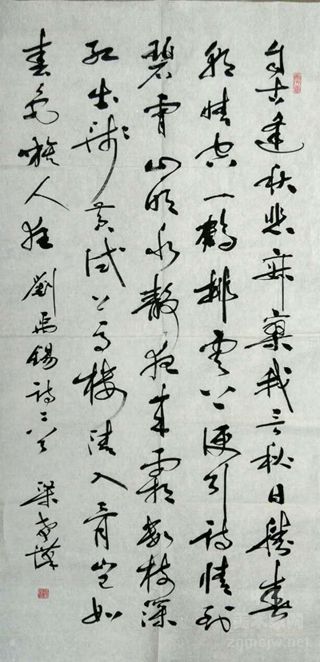 自古逢秋悲寂寥我言秋日勝春
朝晴空一鶴排雲上便引詩情到
碧霄山明水静夜来霜數枝深
红出浅黄试上高楼清入骨岂如
春色嗾人狂 劉禹錫詩二首 梁